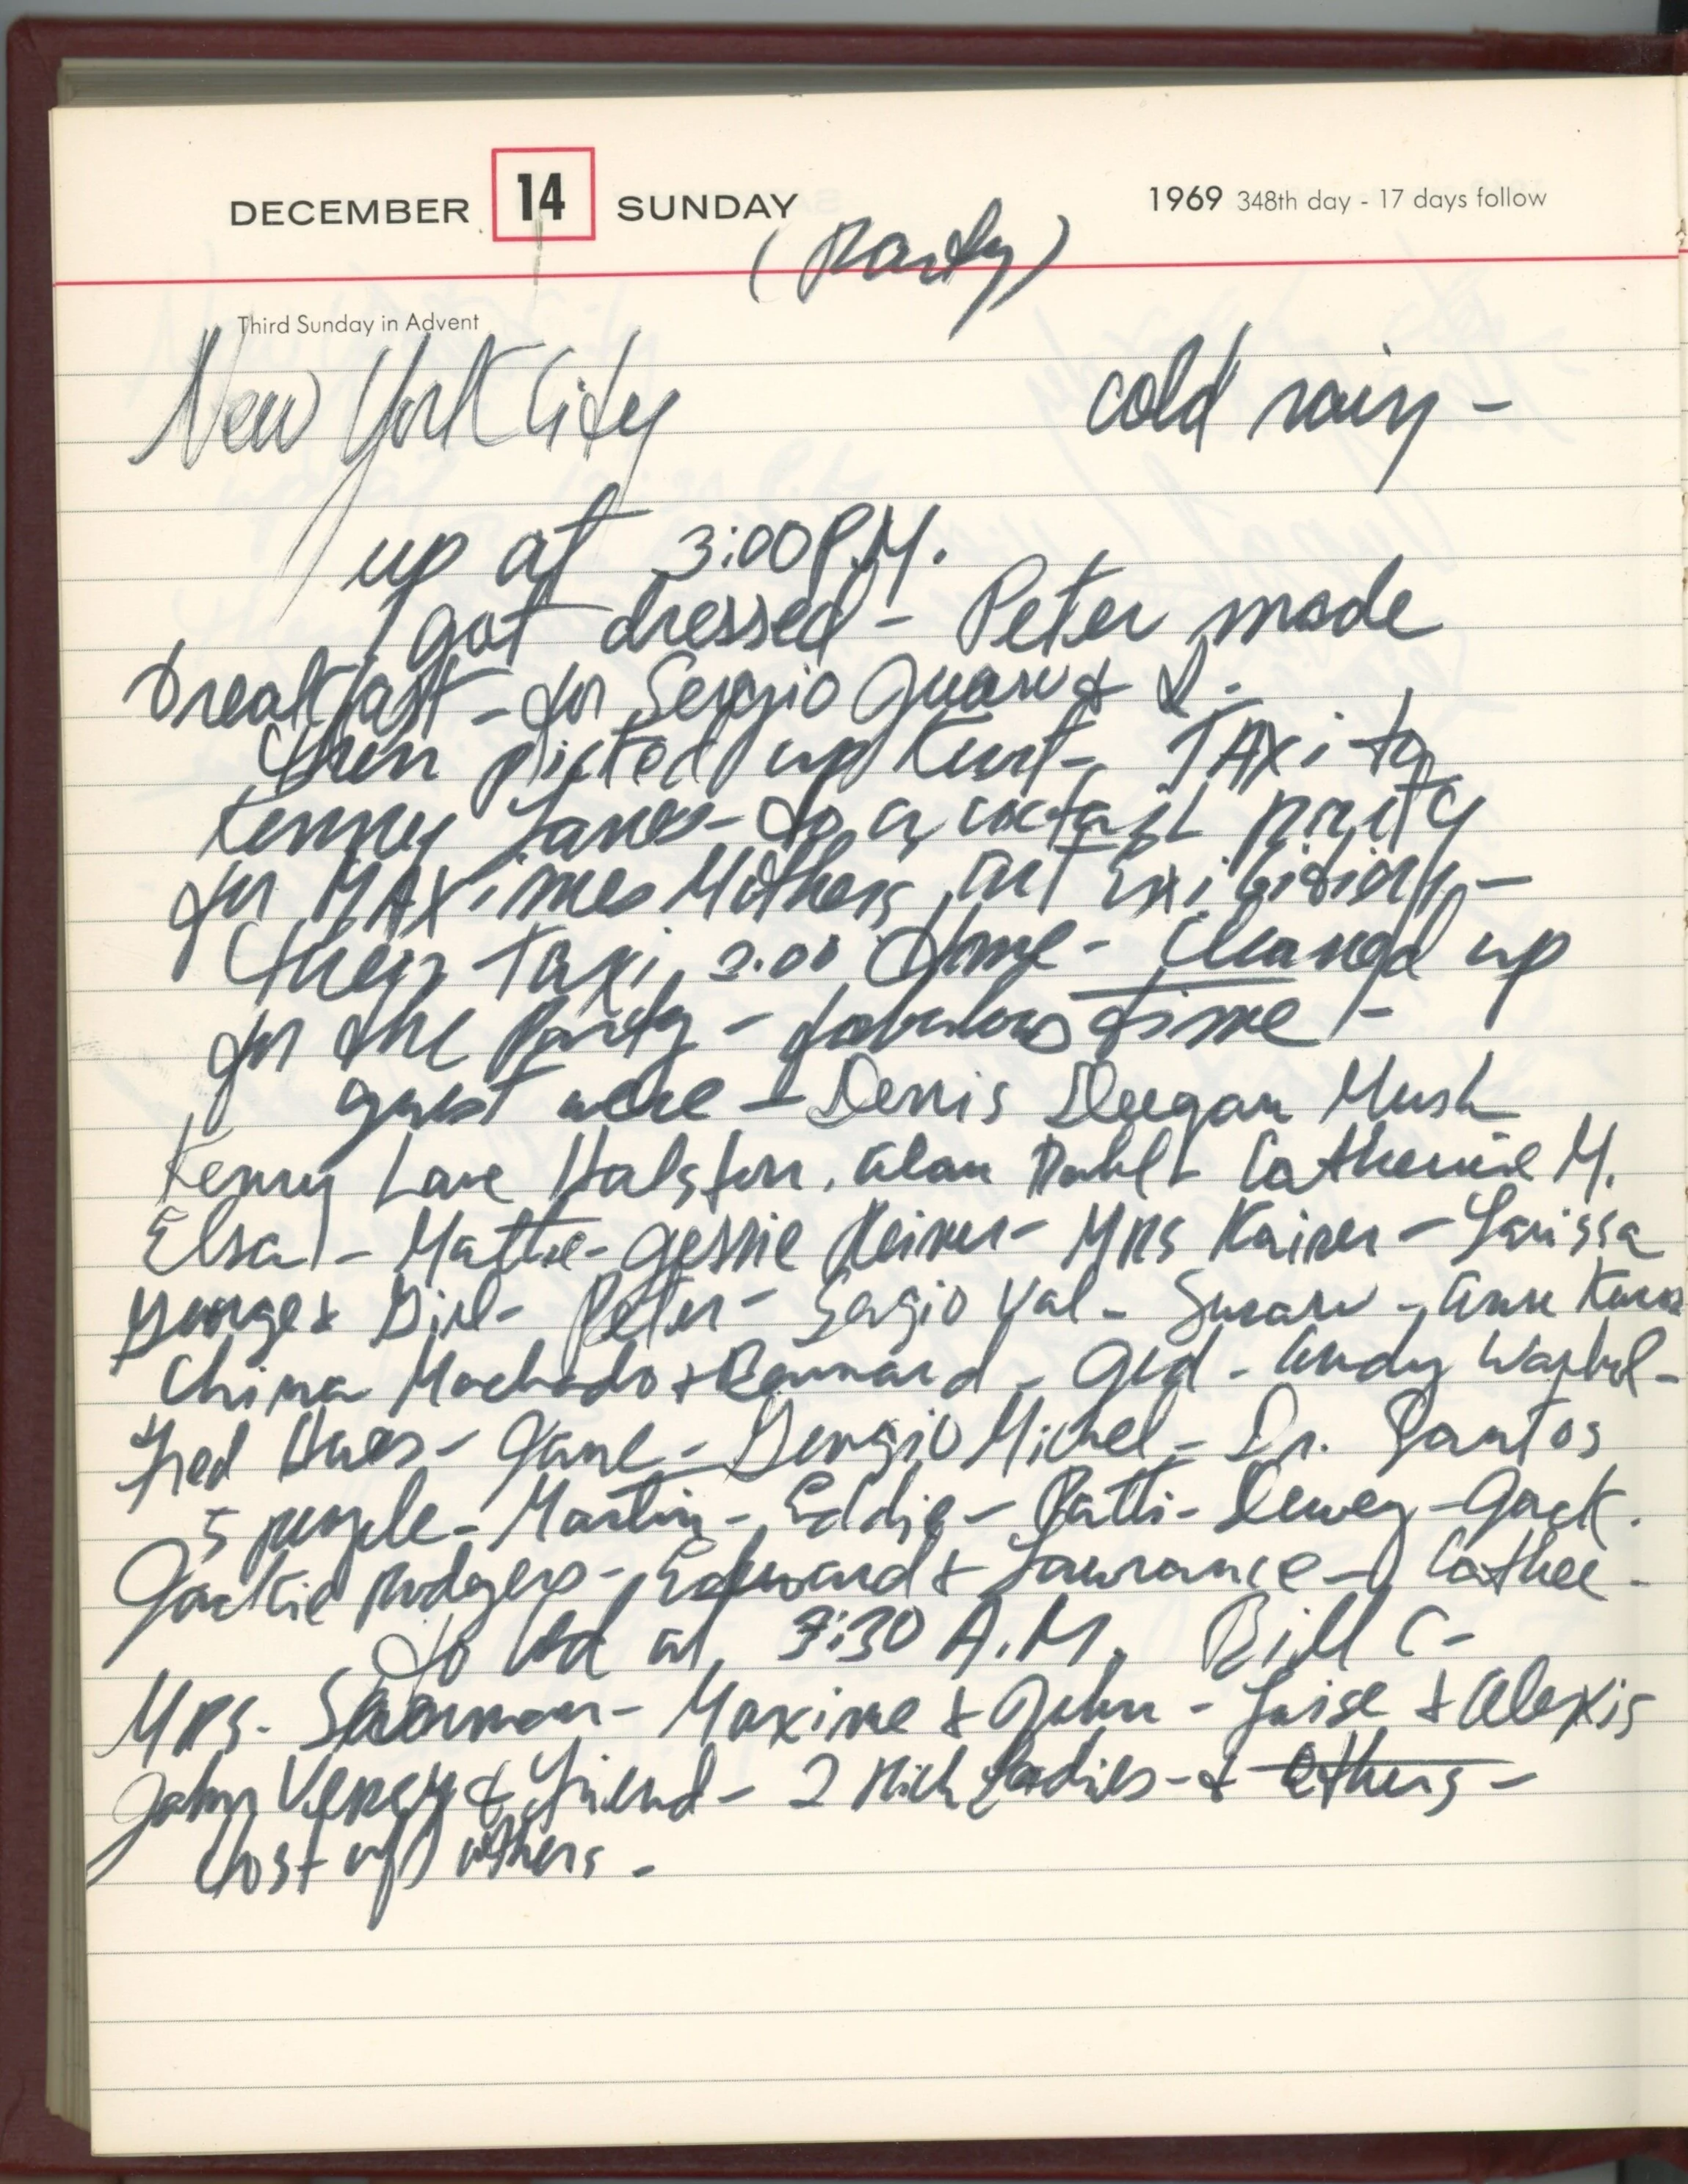 DECEMBER 14 SUNDAY 1969 348th day - 17 days follow
(Party)
Third Sunday in Advent
New York City cold rain -
up at 3:00 P.M.
got dressed - Peter made
breakfast - for Sergio &
then picked up Kurt - TAXi to
Kenny Lanes - to a coctail party
for MAXimes Mothers art Exibition -
then taxi 2.00 home - Cleaned up
for the Party - fabulous time -
guest were - Dennis Deegan Mush
Kenny Lane Halston. alan Catherine M.
Elsa - Mattie - Mrs Kaiser - Larissa
George & - Peter - Sergio Val - - Anne
China Machado & - Gid - Andy Warhol -
Fred - Jane - Giorgio Michel - Dr. Santos
5 people - Martin - Eddie - Patti - Dewey - Jack.
Jackie Rodgers - Edward & Lawrance - Cathee -
to bed at 3:30 A.M. Bill C -
Mrs. - Maxime & John - Loise & Alexis
John & friend - 2 Rich Ladies - & others -
host of others -